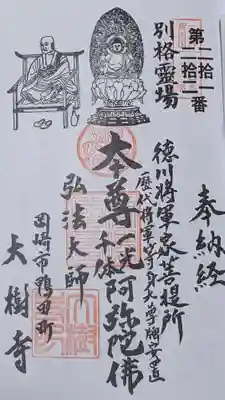 奉納経
第二拾一番
二拾二
別格霊場
徳川将軍家菩提所
歴代将軍等身大尊牌安置
本尊 一光千体阿弥陀佛
弘法大師
岡崎市鴨田町
大樹寺